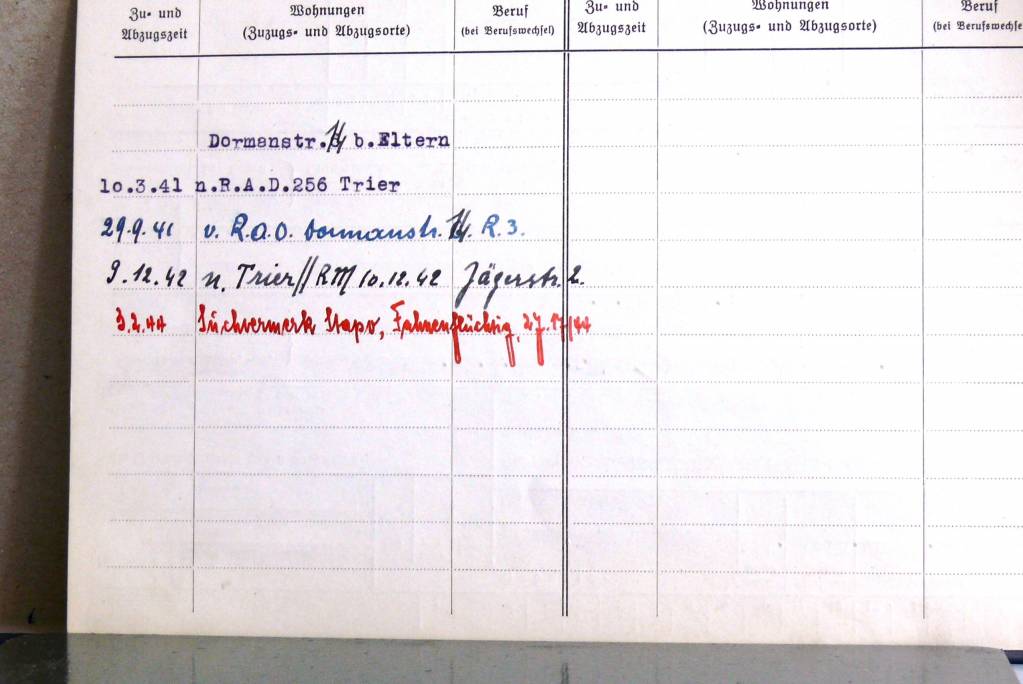 Zu- und Abzugszeit
Wohnungen (Zuzugs- und Abzugsorte)
Beruf (bei Berufswechsel)
Zu- und Abzugszeit
Wohnungen (Zuzugs- und Abzugsorte)
Beruf (bei Berufswechsel
Dormanstr. b.Eltern
lo.3.41 n.R.A.D.256 Trier
29.9.41 v. R.A.D. Dormanstr. R.3.
9.12.42 n. Trier // RM 10.12.42 Jägerstr. 2.
3.2.44 Suchvermerk Stapo, Fahnenflüchtig,